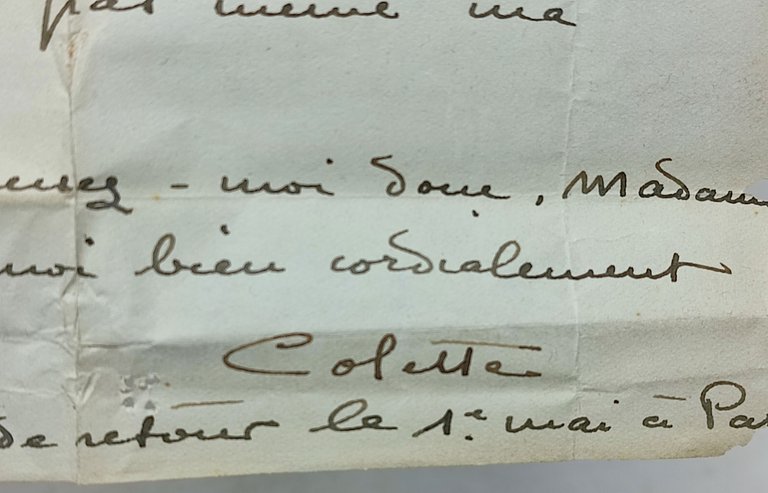 pas même ma
- moi donc, Madam
moi bien cordialement
Colette
de retour le 1er mai à Pa